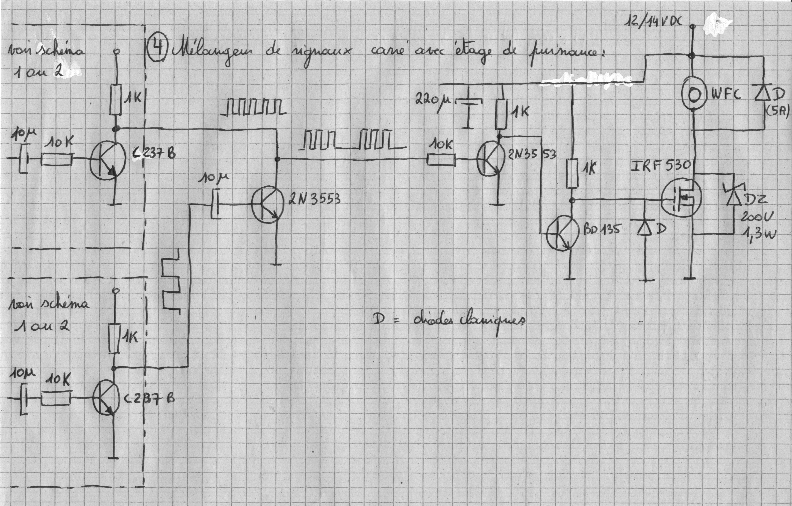 12/14VDC
4 Mélangeur de signaux carré avec étage de puissance:
voir schéma
1 ou 2
1K
10µ
10K
C237B
220µ
1K
10K
2N3553
WFC
D
(5A)
10µ
2N3553
1K
IRF530
BD135
D
DZ
200V
1,3W
voir schéma
1 ou 2
1K
10µ
10K
C237B
D = diodes classiques